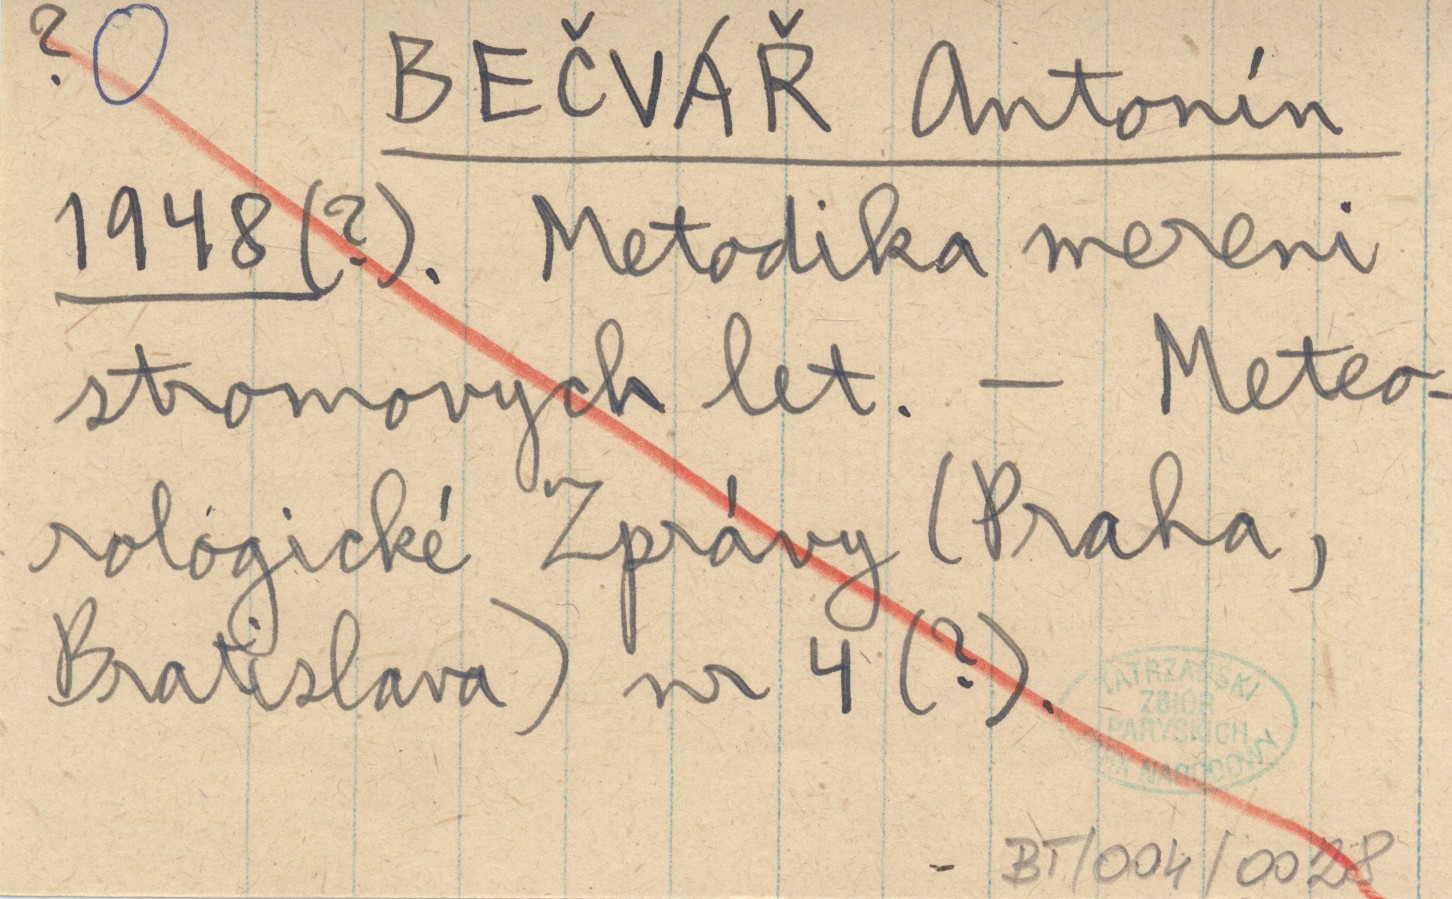 ? BEČVÁŘ Antonín
1948(?). Metodika mereni
stromovych let. — Meteo-
rologické Zprávy (Praha,
Bratislava) nr 4 (?).
TATRZAŃSKI
ZBIÓR
PARYSKICH
PARK NARODOWY
BT/004/0028